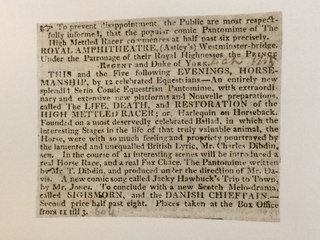 ☞ To prevent disappointment, the Public are most respect-
fully informed, that the popular comic Pantomime of The
High Mettled Racer commences at half past six precisely.
ROYAL AMPHITHEATRE, (Astley's) Westminster-bridge.
Under the Patronage of their Royal Highnesses the PRINCE
REGENT and Duke of YORK.
THIS and the Five following EVENINGS, HORSE-
MANSHIP, by 12 celebrated Equestrians—An entirely new
splendid Serio Comic Equestrian Pantomime, with extraordi-
nary and extensive new platforms and Nouvelle preparations,
called The LIFE, DEATH, and RESTORATION of the
HIGH METTLED RACER; or, Harlequin on Horseback.
Founded on a most deservedly celebrated Ballad, in which the
interesting Stages in the life of that truly valuable animal, the
Horse, were with so much feeling and propriety pourtrayed by
the lamented and unequalled British Lyric, Mr. Charles Dibdin,
sen. In the course of 22 interesting scenes will be introduced a
real Horse Race, and a real Fox Chace. The Pantomime written
by Mr. T. Dibdin, and produced under the direction of Mr. Da-
vis. A new comic song called Jacky Hawbuck's Trip to Town,
by Mr. Jones. To conclude with a new Scotch Melo-drama,
called SIGISMORN, and the DANISH CHIEFTAIN.—
Second price half past eight. Places taken at the Box Office
from 11 till 3.